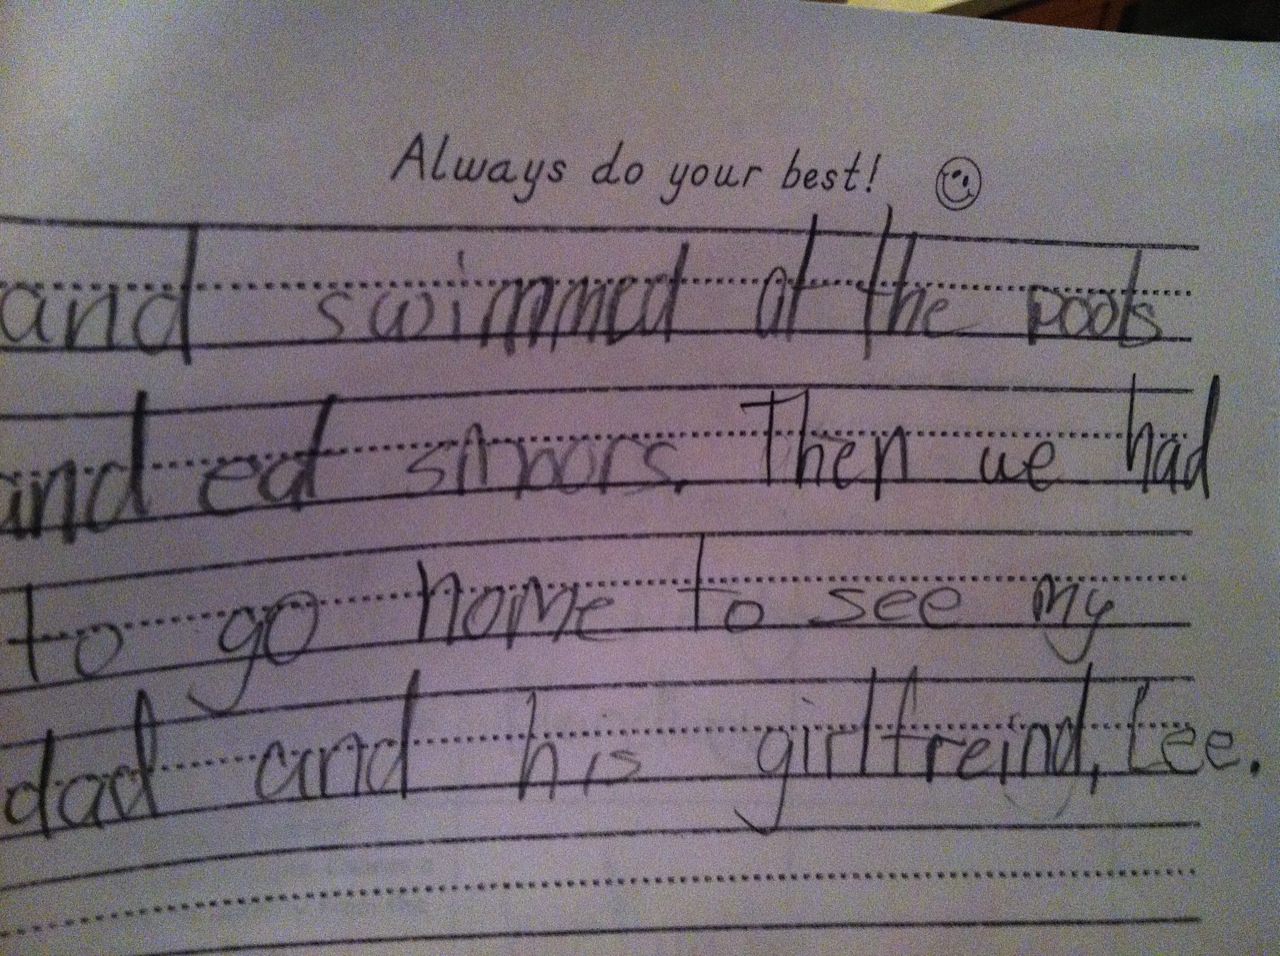 Always do your best!
and swimmed at the pools
and ed smoors. Then we had
to go home to see my
dad and his girlfreind, Lee.